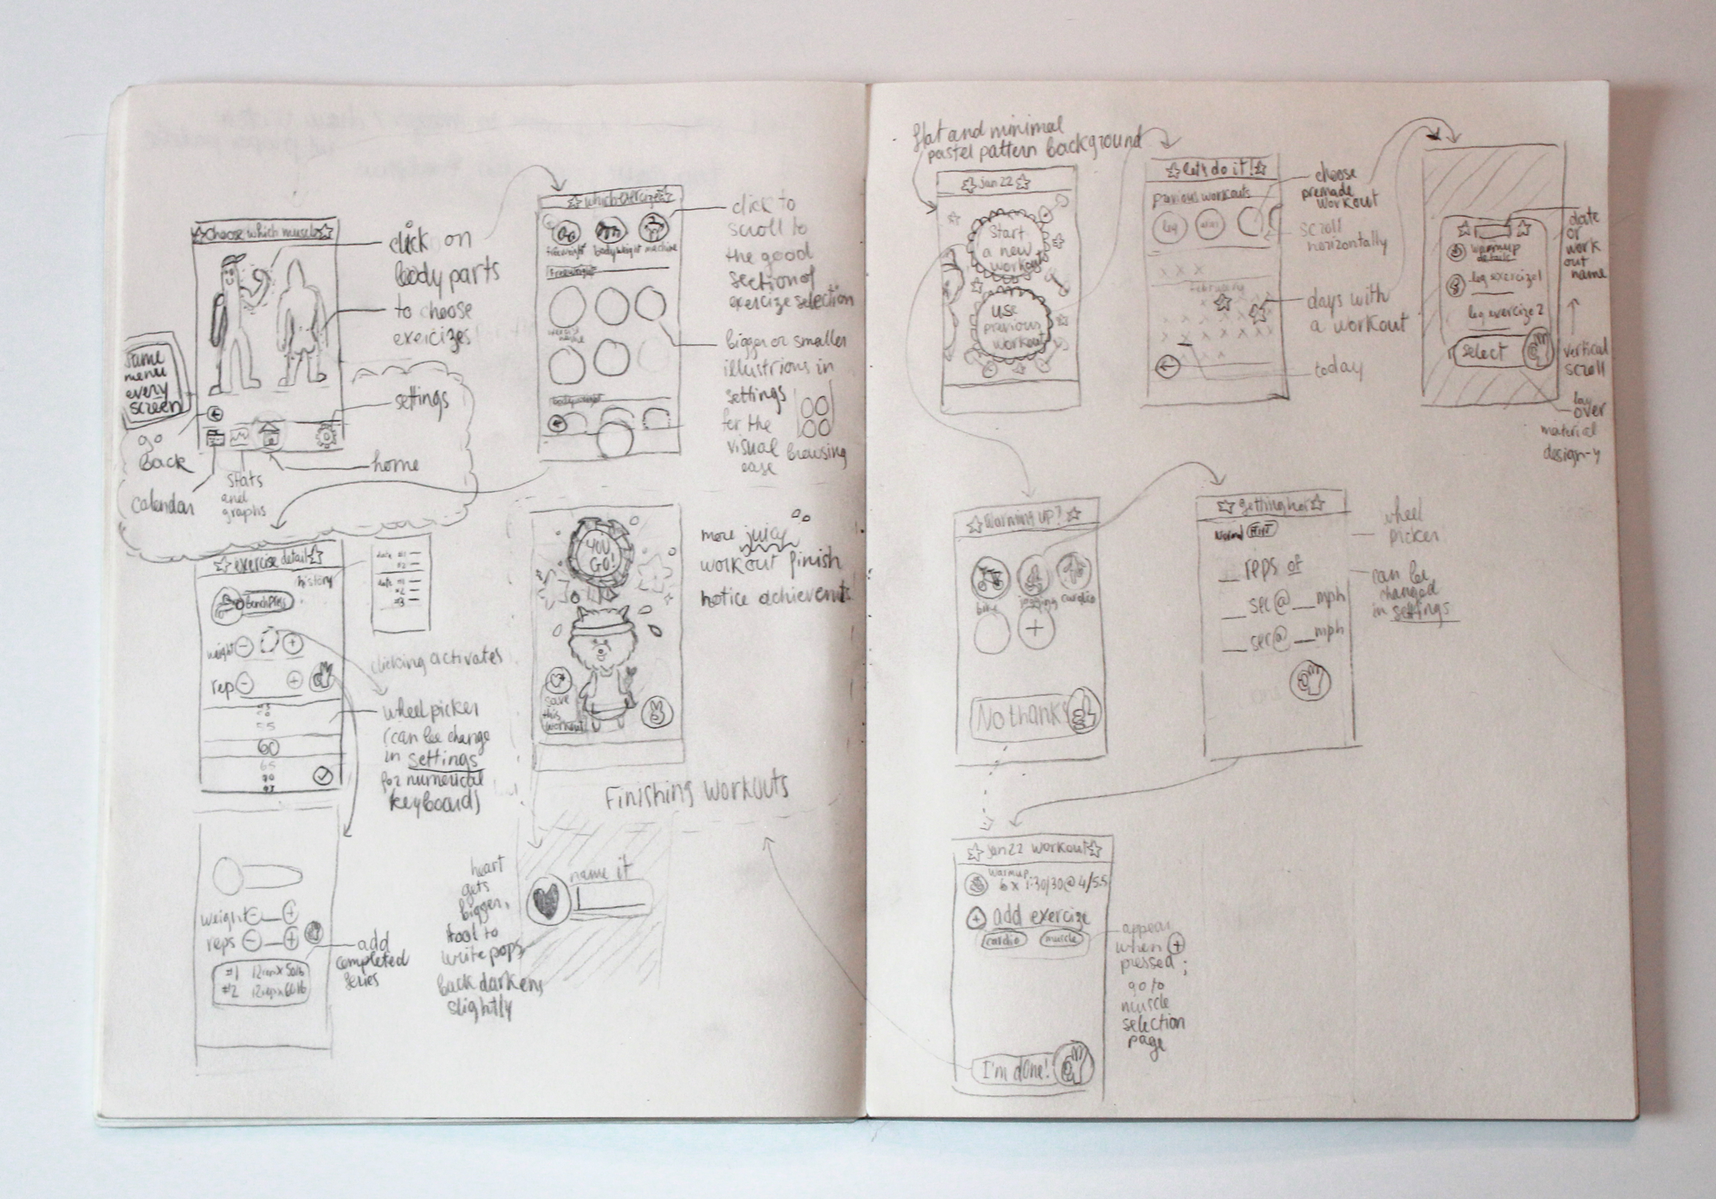 Choose which muscle
click on
body parts
to choose
exercizes
same
menu
every
screen
settings
go
back
home
calendar
stats
and
graphs
which exercize
freeweight bodyweight machine
freeweight
bodyweight
click to
scroll to
the good
section of
exercize selection
bigger or smaller
illustrions in
settings
for the
visual browsing
ease
exercise detail
history
benchpress
weight - +
rep - +
55
60
65
70
clicking activates
wheel picker
(can be change
in settings
for numerical
keyboard)
YOU
GO!
save
this
workout
more juicy
workout finish
notice achievent
Finishing workouts
weight - +
reps - +
#1 12rep x 50lb
#2 12rep x 60lb
add
completed
series
heart
gets
bigger,
tool to
write pops
back darkens
slightly
name it
flat and minimal
pastel pattern background
jan 22
Start
a new
workout
use
previous
workout
let's do it!
previous workouts
leg
February
choose
premade
workout
scroll
horizontally
days with
a workout
today
warmup
details
leg exercize 1
leg exercize 2
select
date
or
work
out
name
vertical
scroll
lay
over
material
design-y
Warming up?
bike jogging cardio
+
No thanks
getting hot
normal HIIT
__ reps of
__ sec @ __ mph
__ sec @ __ mph
wheel
picker
can be
changed
in settings
jan 22 workout
warmup
6 x 1:30/30 @ 4/5.5
+ add exercize
cardio muscle
I'm done!
appear
when +
pressed;
go to
muscle
selection
page